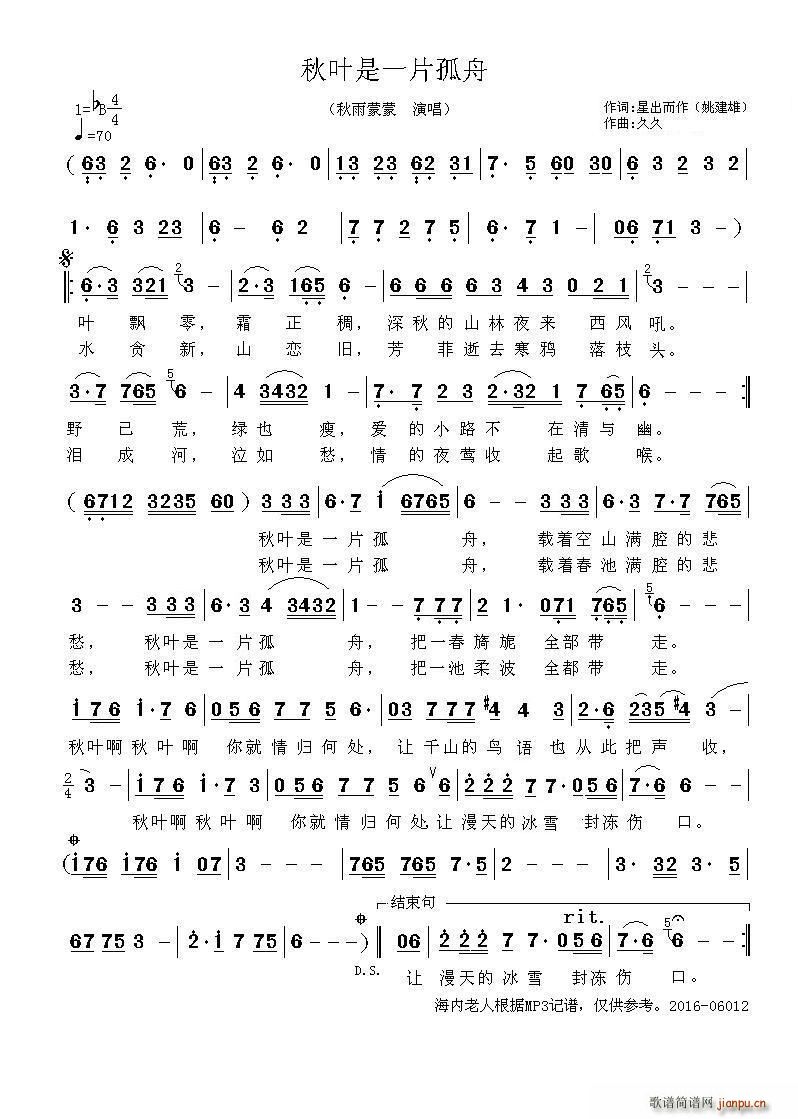 秋叶是一片孤舟
1=♭B 4/4
（秋雨蒙蒙 演唱）
作词:星出而作（姚建雄）
♩=70
作曲:久久
（63 2 6· 0 | 63 2 6· 0 | 13 23 62 31 | 7· 5 60 30 | 6 3 2 3 2 |
1· 6 3 23 | 6 - 6 2 | 7 7 2 7 5 | 6· 7 1 - | 06 71 3 - ）
𝄋
‖: 6·3 321 2 3 - | 2·3 165 6 - | 6 6 6 6 3 4 3 0 2 1 | 2 3 - - - |
叶 飘 零， 霜 正 稠， 深秋的山林夜来 西风 吼。
水 贪 新， 山 恋 旧， 芳 菲逝去寒鸦 落枝 头。
3·7 765 5 6 - | 4 3432 1 - | 7· 7 2 3 2·32 1 7 65 | 6 - - - :‖
野 已 荒， 绿也 瘦， 爱 的小路不 在清与 幽。
泪 成 河， 泣如 愁， 情 的夜莺收 起歌 喉。
（ 6712 3235 60 ）3 3 3 | 6·7 i 6765 | 6 - - 3 3 3 | 6·3 7·7 765 |
秋叶是 一 片 孤 舟， 载着空 山 满 腔 的 悲
秋叶是 一 片 孤 舟， 载着春 池 满 腔 的 悲
3 - - 3 3 3 | 6·3 4 3432 | 1 - - 7 7 7 | 2 1· 071 765 | 5 6 - - - |
愁， 秋叶是 一 片 孤 舟， 把一春 旖 旎 全部 带 走。
愁， 秋叶是 一 片 孤 舟， 把一池 柔 波 全都 带 走。
i 7 6 i·7 6 | 0 5 6 7 7 5 6· | 03 7 7 7 #4 4 | 2·6 235 #4 3 - |
秋叶啊 秋 叶 啊 你就 情归何 处， 让 千山的 鸟 语 也 从 此 把 声 收，
2/4 3 - | i 7 6 i·7 3 | 0 5 6 7 7 5 6 ∨ 6 | 2 2 2 7 7·056 | 7·6 6 - - |
秋叶啊 秋 叶 啊 你就 情 归 何 处,让 漫天的 冰 雪 封冻 伤 口。
𝄌
（i76 i76 i 07 | 3 - - - | 765 765 7·5 | 2 - - - | 3· 32 3· 5 |
结束句
rit.
67 75 3 - | 2·i 7 75 | 6 - - - ）‖ 06 | 2 2 2 7 7·056 | 7·6 5 6 - - ‖
D.S.
让 漫天的 冰 雪 封冻 伤 口。
海内老人根据MP3记谱，仅供参考。2016-06012
歌谱简谱网
jianpu.cn